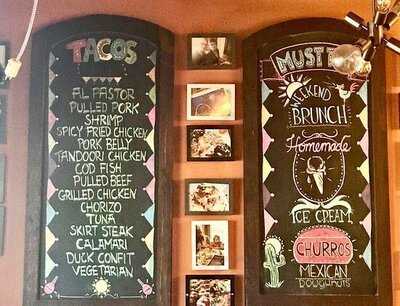 TACOS
AL PASTOR
PULLED PORK
SHRIMP
SPICY FRIED CHICKEN
PORK BELLY
TANDOORI CHICKEN
COD FISH
PULLED BEEF
GRILLED CHICKEN
CHORIZO
TUNA
SKIRT STEAK
CALAMARI
DUCK CONFIT
VEGETARIAN
MUST
WEEKEND
BRUNCH
Homemade
ICE CREAM
CHURROS
MEXICAN
DOUGNUTS